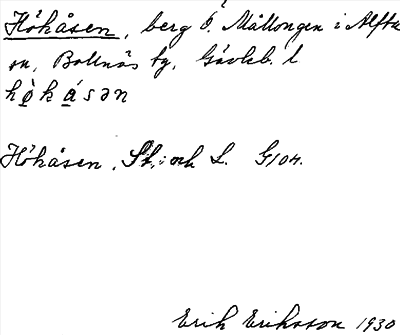 Höhåsen, berg Ö. Mållongen i Alfta
sn, Bollnäs tg, Gävleb. l
hökåsən
Höhåsen. Sk. och L. G104.
Erik Eriksson 1930